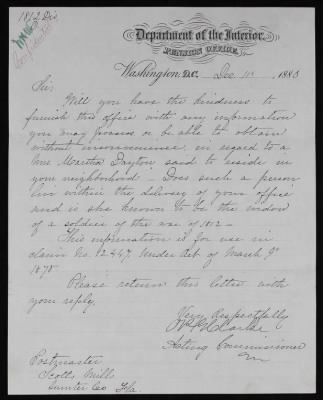 1812 Div.
Confidential
Department of the Interior,
PENSION OFFICE,
Washington, D.C. Dec 10, 1880
Sir,
Will you have the kindness to
furnish this office with any information
you may possess or be able to obtain
without inconvenience, in regard to a
Mrs Martha Dayton said to reside in
your neighborhood. Does such a person
live within the delivery of your office
and is she known to be the widow
of a soldier of the war of 1812 -
This information is for use in
claim No. 12447, Under Act of March 9"
1878
Please return this letter with
your reply.
Very Respectfully
Clarke
Acting Commissioner
Postmaster
Scotts Mills
Sumter Co Fla.